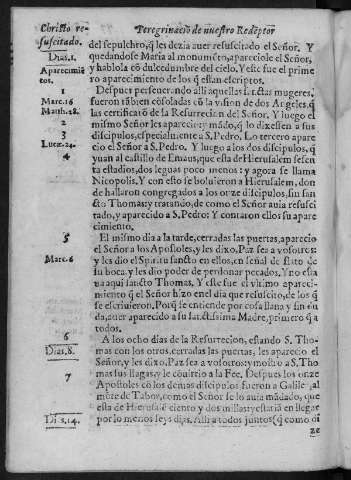 Christo re-
suscitado.
Peregrinació de nuestro Redẽptor
Dias.1.
Aparecimiẽ
tos.
1
Marc.16
Matth.28.
2
3
Luca.24.
4
5
Marc.6
6
Dias,8.
7
Di s,14.
del sepulchro,q̃ les dezia auer resuscitado el Señor. Y
quedandose Maria al monumẽto, apareciole el Señor,
y hablola cõ dulcedumbre del cielo. Y este fue el prime
ro aparecimiento de los q̃ estan escriptos.
Despues perseuerando alli aquellas sãctas mugeres,
fueron tãbien cõsoladas cõ la vision de dos Angeles,q̃
las certificarõ de la Resurrecion del Señor. Y luego el
mismo Señor les aparecio,y mãdo, q̃ lo dixessen a sus
discipulos,especialmente a S.Pedro. Lo tercero apare
cio el Señor a S.Pedro. Y luego a los dos discipulos,q̃
yuan al castillo de Emaus,que esta de Hierusalẽ sesen
ta estadios,dos leguas poco menos: y agora se llama
Nicopolis,Y con esto se boluieron a Hierusalem, don
de hallaron congregados a los onze discipulos, sin san
cto Thomas;y tratando,de como el Señor auia resusci
tado,y aparecido a S.Pedro: Y contaron ellos su apare
cimiento.
El mismo dia a la tarde,cerradas las puertas,aparecio
el Señor a los Apostoles,y les dixo. Paz sea a vosotros:
y les dio el Spiritu sancto en ellos,en señal de flato de
su boca,y les dio poder de perdonar pecados,Y no esta
ua aqui sancto Thomas, Y este fue el vltimo apareci-
miento q̃ el Señor hizo en el dia que resuscito,de los q̃
se escriuieron. Porq̃ se entiende por cosa llana y sin du
da,auer aparecido a su sanctissima Madre,primero q̃ a
todos.
A los ocho dias de la Resurrecion, estando S. Tho-
mas con los otros,cerradas las puertas, les aparecio el
Señor,y les dixo,Paz sea a vosotros:y mostro a S,Tho
mas sus llagas:y le cõuirtio a la Fee. Despues los onze
Apostoles cõ los demas discipulos fueron a Galile ,al
mõte de Tabor,como el Señor se lo auia mãdado, que
esta de Hierusalẽ ciento y dos millas:y estariã en llegar
por lo menos seys dias. Alli a todos juntos,q̃ como di
ze